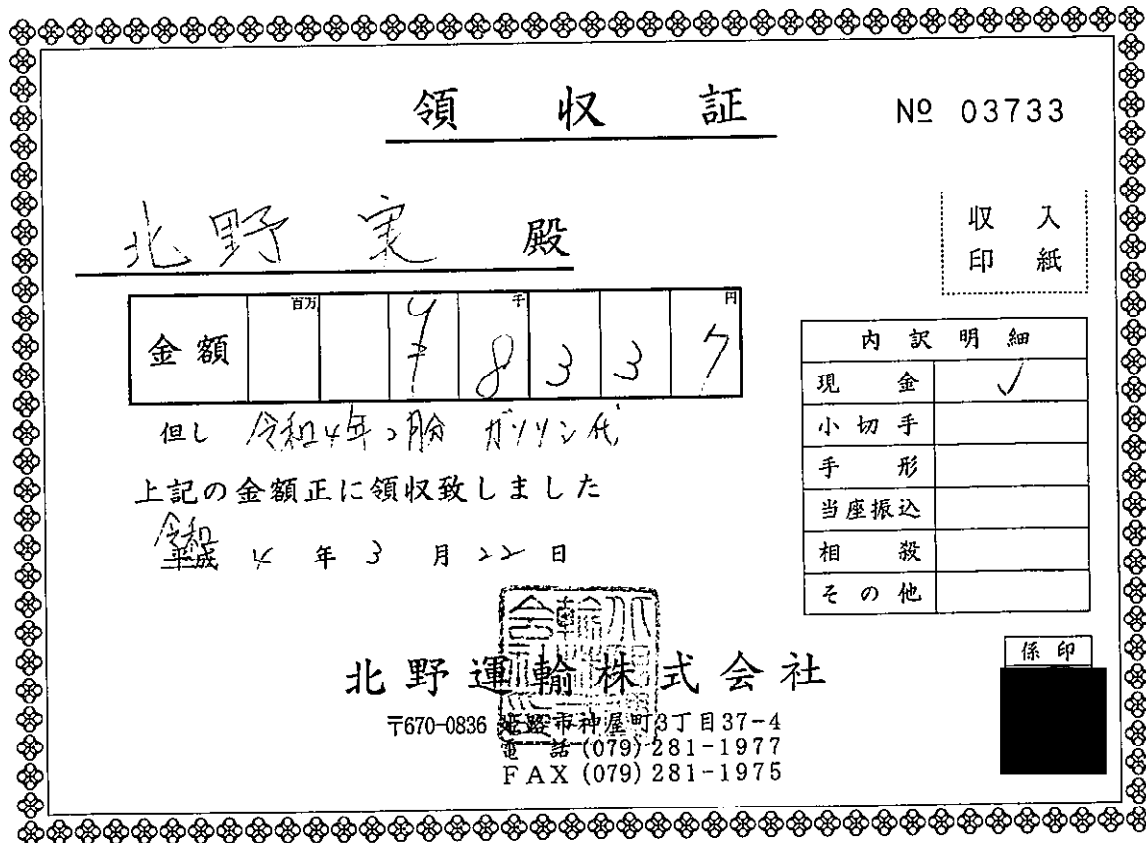 領収証
№ 03733
北野 殿
収入
印紙
金額 百万 千 円 ¥8337
但し 令和4年2月分 ガソリン代
上記の金額正に領収致しました
令和
平成 4 年 3 月 22 日
内訳明細
現金 ✓
小切手
手形
当座振込
相殺
その他
係印
北野運輸株式会社
〒670-0836 姫路市神屋町3丁目37-4
電話 (079) 281-1977
FAX (079) 281-1975